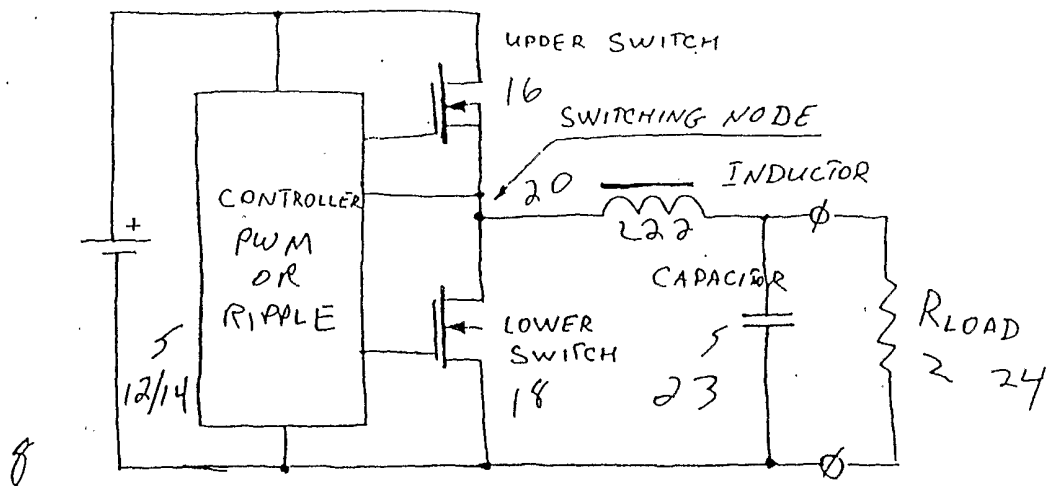 UPPER SWITCH
16
SWITCHING NODE
20
INDUCTOR
22
CONTROLLER
PWM
OR
RIPPLE
+
CAPACITOR
LOWER
SWITCH
18
12/14
23
RLOAD
24
8